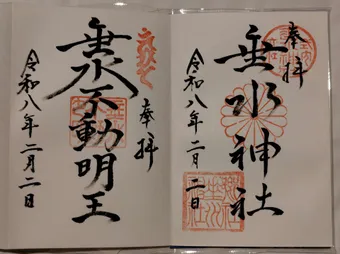 奉拝
垂水神社
令和八年二月二日
奉拝
垂水不動明王
令和八年二月二日